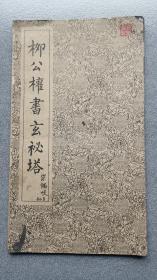 柳公權書玄祕塔